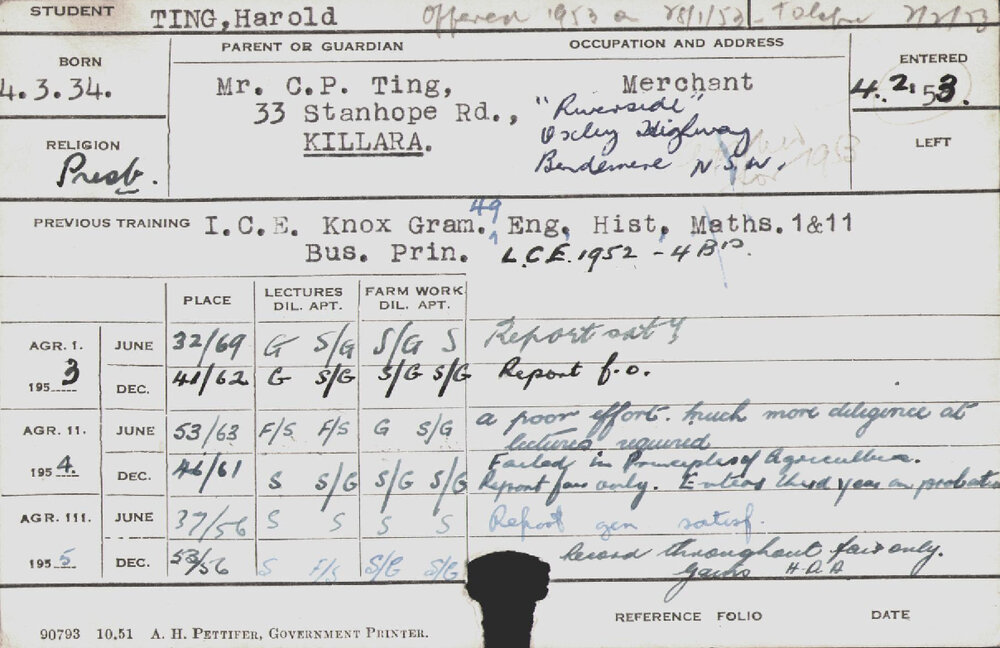 STUDENT TING, Harold Offered 1953 on 28/1/53 -
PARENT OR GUARDIAN OCCUPATION AND ADDRESS
BORN ENTERED
4.3.34. Mr. C.P. Ting, Merchant 4.2.53.
33 Stanhope Rd., "Riverside"
KILLARA. Oxley Highway
Bendemere N.S.W. 1953
RELIGION LEFT
Presb.
PREVIOUS TRAINING I.C.E. Knox Gram. 49 Eng, Hist, Maths. 1&11
Bus. Prin. L.C.E. 1952 - 4 B's.
PLACE LECTURES FARM WORK
DIL. APT. DIL. APT.
AGR. 1. JUNE 32/69 G S/G S/G S Report sat y
1953 DEC. 41/62 G S/G S/G S/G Report f.o.
AGR. 11. JUNE 53/63 F/S F/S G S/G a poor effort. Much more diligence at
lectures required
Failed in Principles of Agriculture.
1954. DEC. 46/61 S S/G S/G S/G Report fair only. Enters third year on probation
AGR. 111. JUNE 37/56 S S S S Report gen satisf.
1955 DEC. 53/56 S F/S S/G S/G Record throughout fair only.
Gains H.D.A
REFERENCE FOLIO DATE
90793 10.51 A. H. PETTIFER, GOVERNMENT PRINTER.